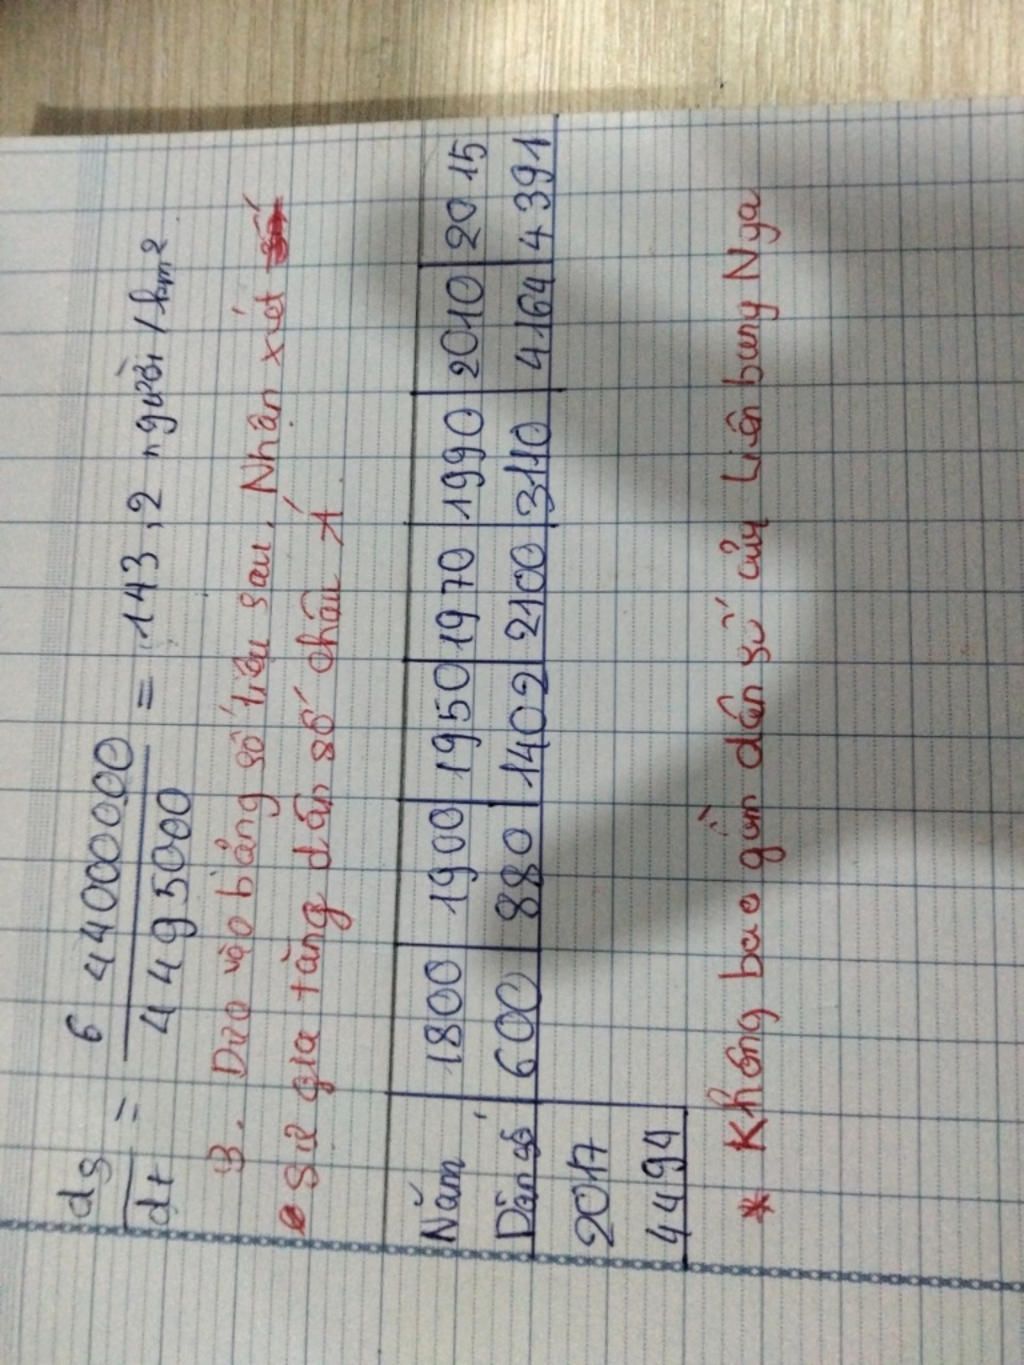 ds = 6 44000000 = 143,2 người / km²
dt 4495000
3. Dựa vào bảng số liệu sau. Nhận xét
sự gia tăng dân số châu Á
Năm 1800 1900 1950 1970 1990 2010 2015
Dân số 600 880 1402 2100 3110 4164 4391
2017
4494
* Không bao gồm dân số của Liên bang Nga